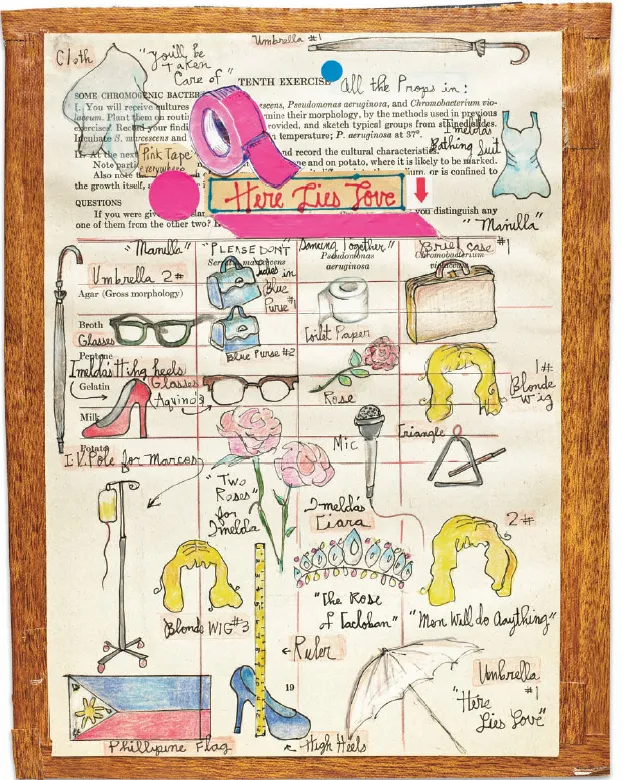 Umbrella #1
Cloth
"you'll be
Taken
Care of"
TENTH EXERCISE
All the Props in:
SOME CHROMOGENIC BACTER
I. You will receive cultures
escens, Pseudomonas aeruginosa, and Chromobacterium vio-
laceum. Plant them on
mine their morphology, by the methods used in previous
exercises. Record your findi
rovided, and sketch typical groups from stained slides.
Incubate S. marcescens and
temperature; P. aeruginosa at 37°.
Imelda's
Bathing Suit
II. At the next
and record the cultural characteristics.
Pink Tape
everywhere
Also note
one and on potato, where it is likely to be marked.
or is confined to
the growth itself,
Here Lies Love
QUESTIONS
If you were give
you distinguish any
one of them from the other two?
"Manilla"
"Manilla"
"PLEASE DON'T"
Dancing Together"
Brief case #1
Pseudomonas
aeruginosa
Chromobacterium
violaceum
Umbrella 2#
Ladies in
Blue
Purse #1
Agar (Gross morphology)
Broth
Glasses
Toilet Paper
Peptone
Blue Purse #2
Imelda's High heels
Gelatin
Glasses
Aquino's
Rose
1#
Blonde
Wig
Milk
Mic
Triangle
Potato
I.V. Pole for Marcos
"Two
Roses"
for
Imelda
Imelda's
Tiara
2#
Blonde WIG #3
"The Rose
of Tacloban"
"Men Will do Anything"
← Ruler
Umbrella
#1
"Here
Lies Love"
19
Phillypine Flag
← High Heels